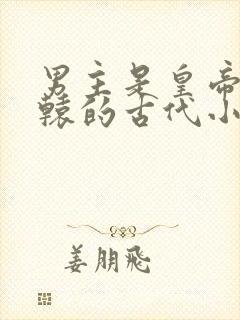 男主是皇帝
辕的古代小
姜朋飛